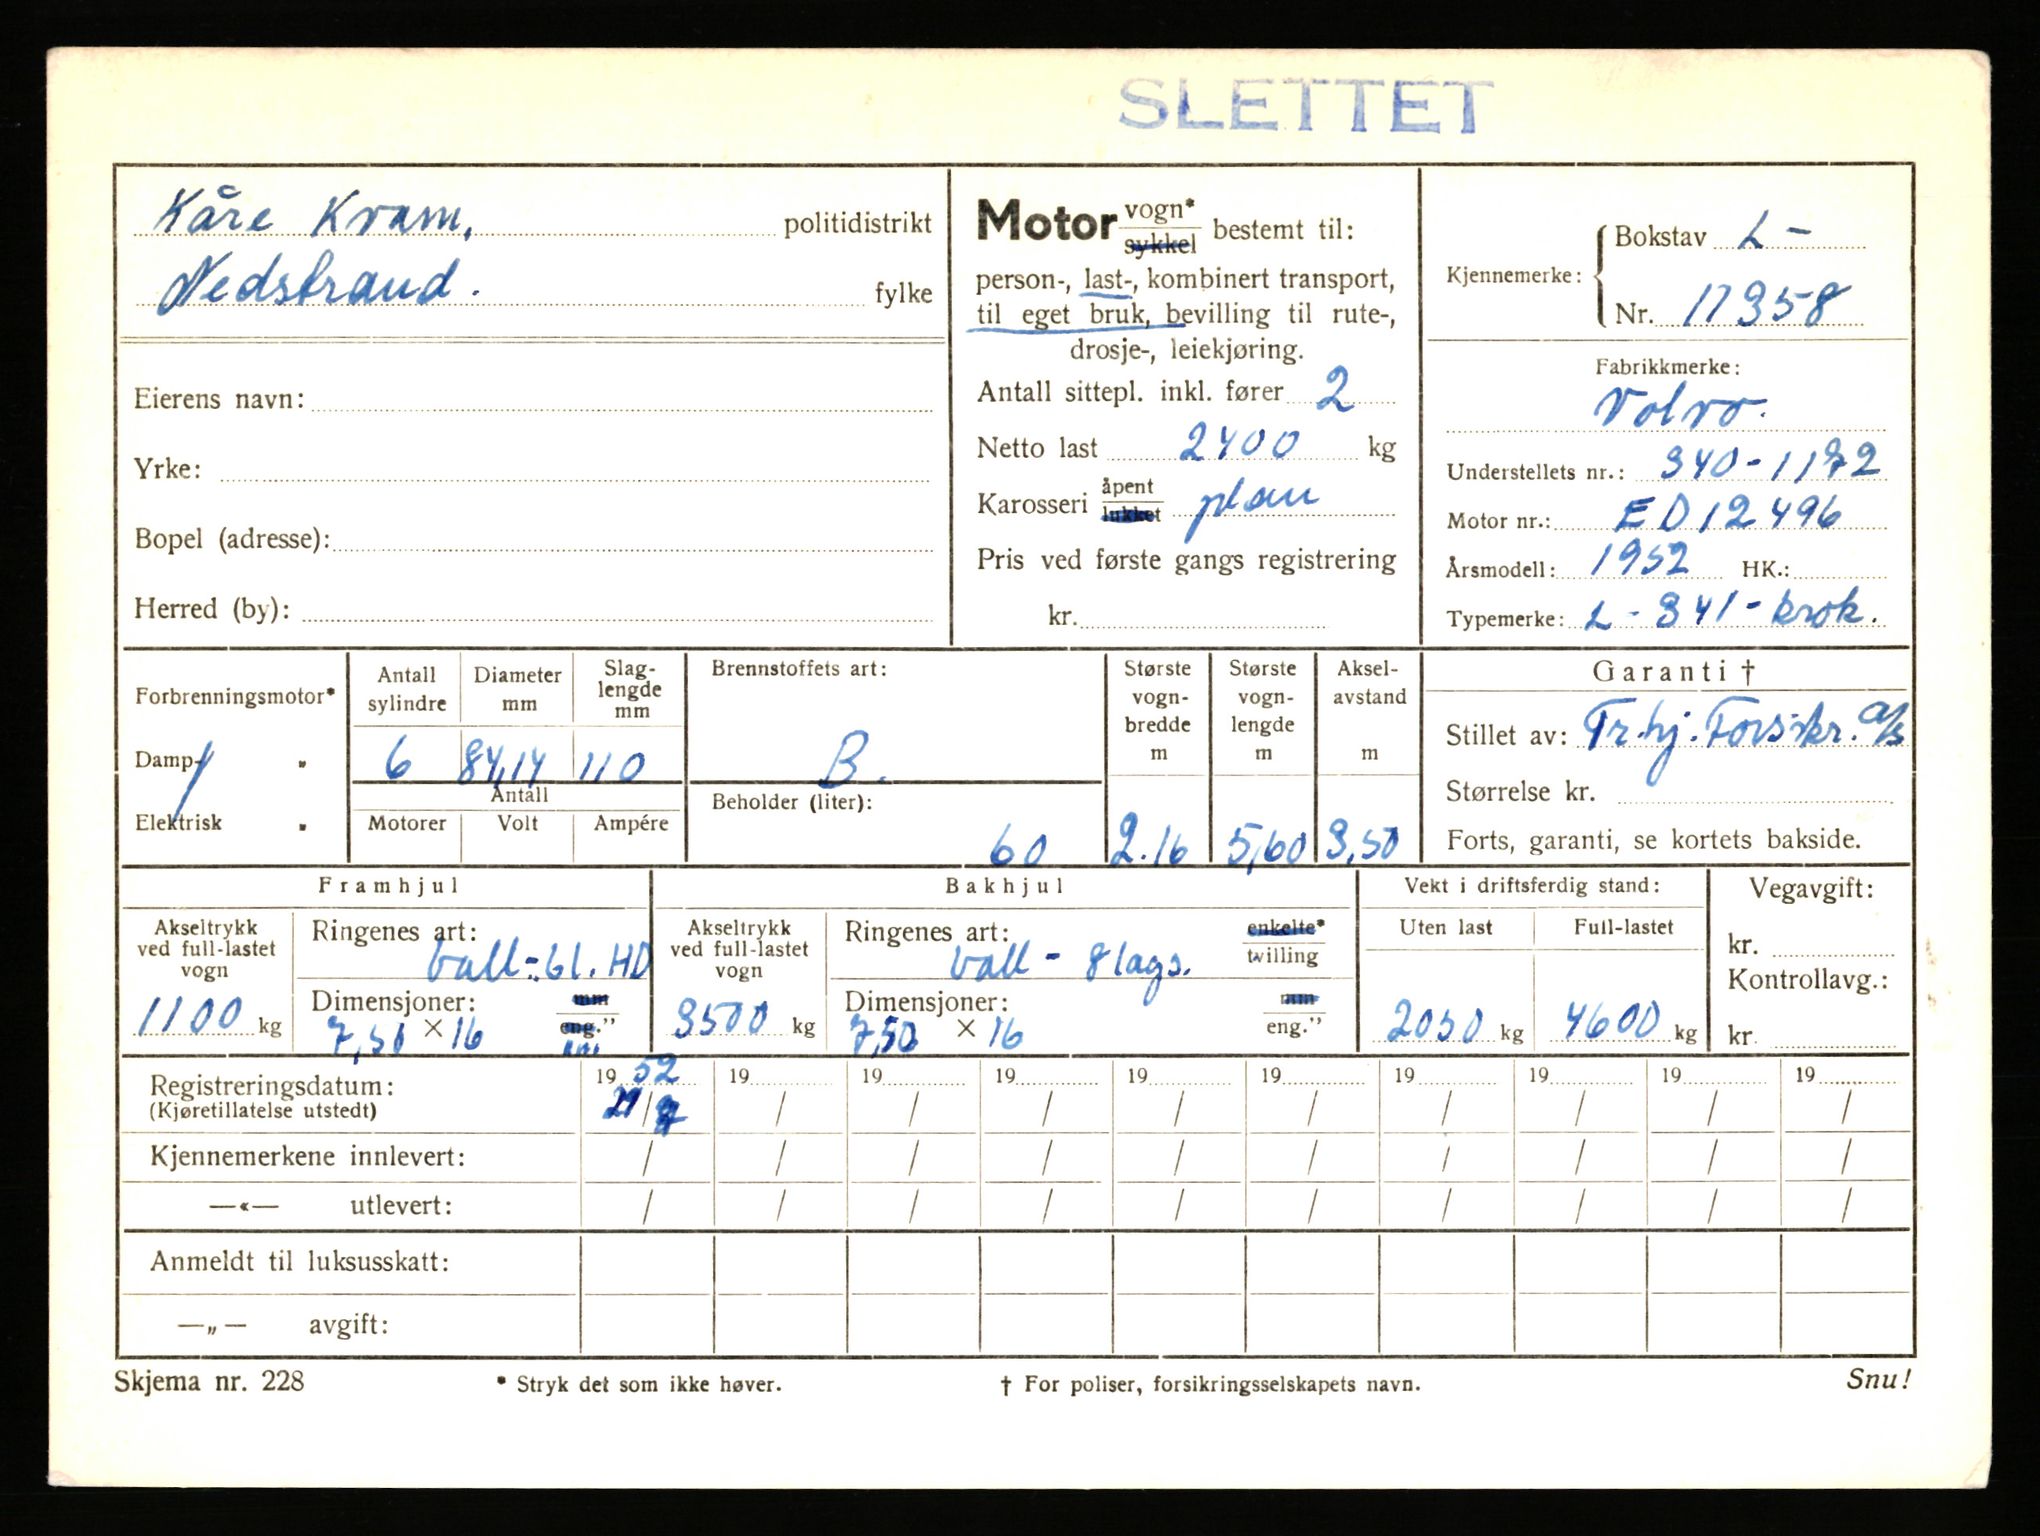 SLETTET
Kåre Kvam, politidistrikt
Nedstrand. fylke
Eierens navn:
Yrke:
Bopel (adresse):
Herred (by):
Motor vogn* sykkel bestemt til:
person-, last-, kombinert transport,
til eget bruk, bevilling til rute-,
drosje-, leiekjøring.
Antall sittepl. inkl. fører 2
Netto last 2400 kg
Karosseri åpent lukket plan
Pris ved første gangs registrering
kr.
Kjennemerke: Bokstav L -
Nr. 17358
Fabrikkmerke:
Volvo.
Understellets nr.: 340-1172
Motor nr.: ED12496
Årsmodell: 1952 HK.:
Typemerke: L-341-krok.
Forbrenningsmotor*
Damp- "
Elektrisk "
Antall sylindre Diameter mm Slag- lengde mm
6 84,14 110
Antall
Motorer Volt Ampére
Brennstoffets art:
B.
Beholder (liter):
60
Største vogn- bredde m
2.16
Største vogn- lengde m
5,60
Aksel- avstand m
3,50
Garanti †
Stillet av: Tr.hj. Forsikr. A/S
Størrelse kr.
Forts, garanti, se kortets bakside.
Framhjul
Akseltrykk ved full-lastet vogn
1100 kg
Ringenes art:
ball-6l. HD
Dimensjoner: mm eng."
7,50 × 16
Bakhjul
Akseltrykk ved full-lastet vogn
3500 kg
Ringenes art: enkelte* tvilling
ball - 8 lags.
Dimensjoner: mm eng."
7,50 × 16
Vekt i driftsferdig stand:
Uten last Full-lastet
2050 kg 4600 kg
Vegavgift:
kr.
Kontrollavg.:
kr.
Registreringsdatum: 19 52 19 19 19 19 19 19 19 19 19
(Kjøretillatelse utstedt) / / / / / / / / / /
Kjennemerkene innlevert: / / / / / / / / / /
—«— utlevert: / / / / / / / / / /
Anmeldt til luksusskatt:
—„— avgift:
Skjema nr. 228 * Stryk det som ikke høver. † For poliser, forsikringsselskapets navn. Snu!